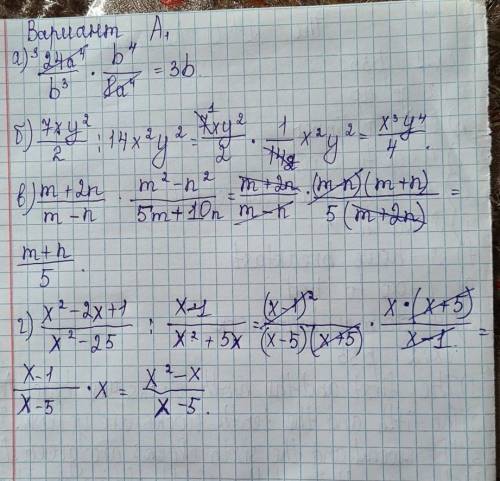 Вариант А₁
а) ³ 24a⁴/b³ · b⁴/8a⁴ = 3b
б) 7xy²/2 : 14x²y² = ¹7xy²/2 · 1/14₂ x²y² = x³y⁴/4.
в) m+2n/m-n · m²-n²/5m+10n = m+2n/m-n · (m-n)(m+n)/5(m+2n) =
m+n/5.
г) x²-2x+1/x²-25 : x-1/x²+5x = (x-1)²/(x-5)(x+5) · x·(x+5)/x-1 =
x-1/x-5 · x = x²-x/x-5.